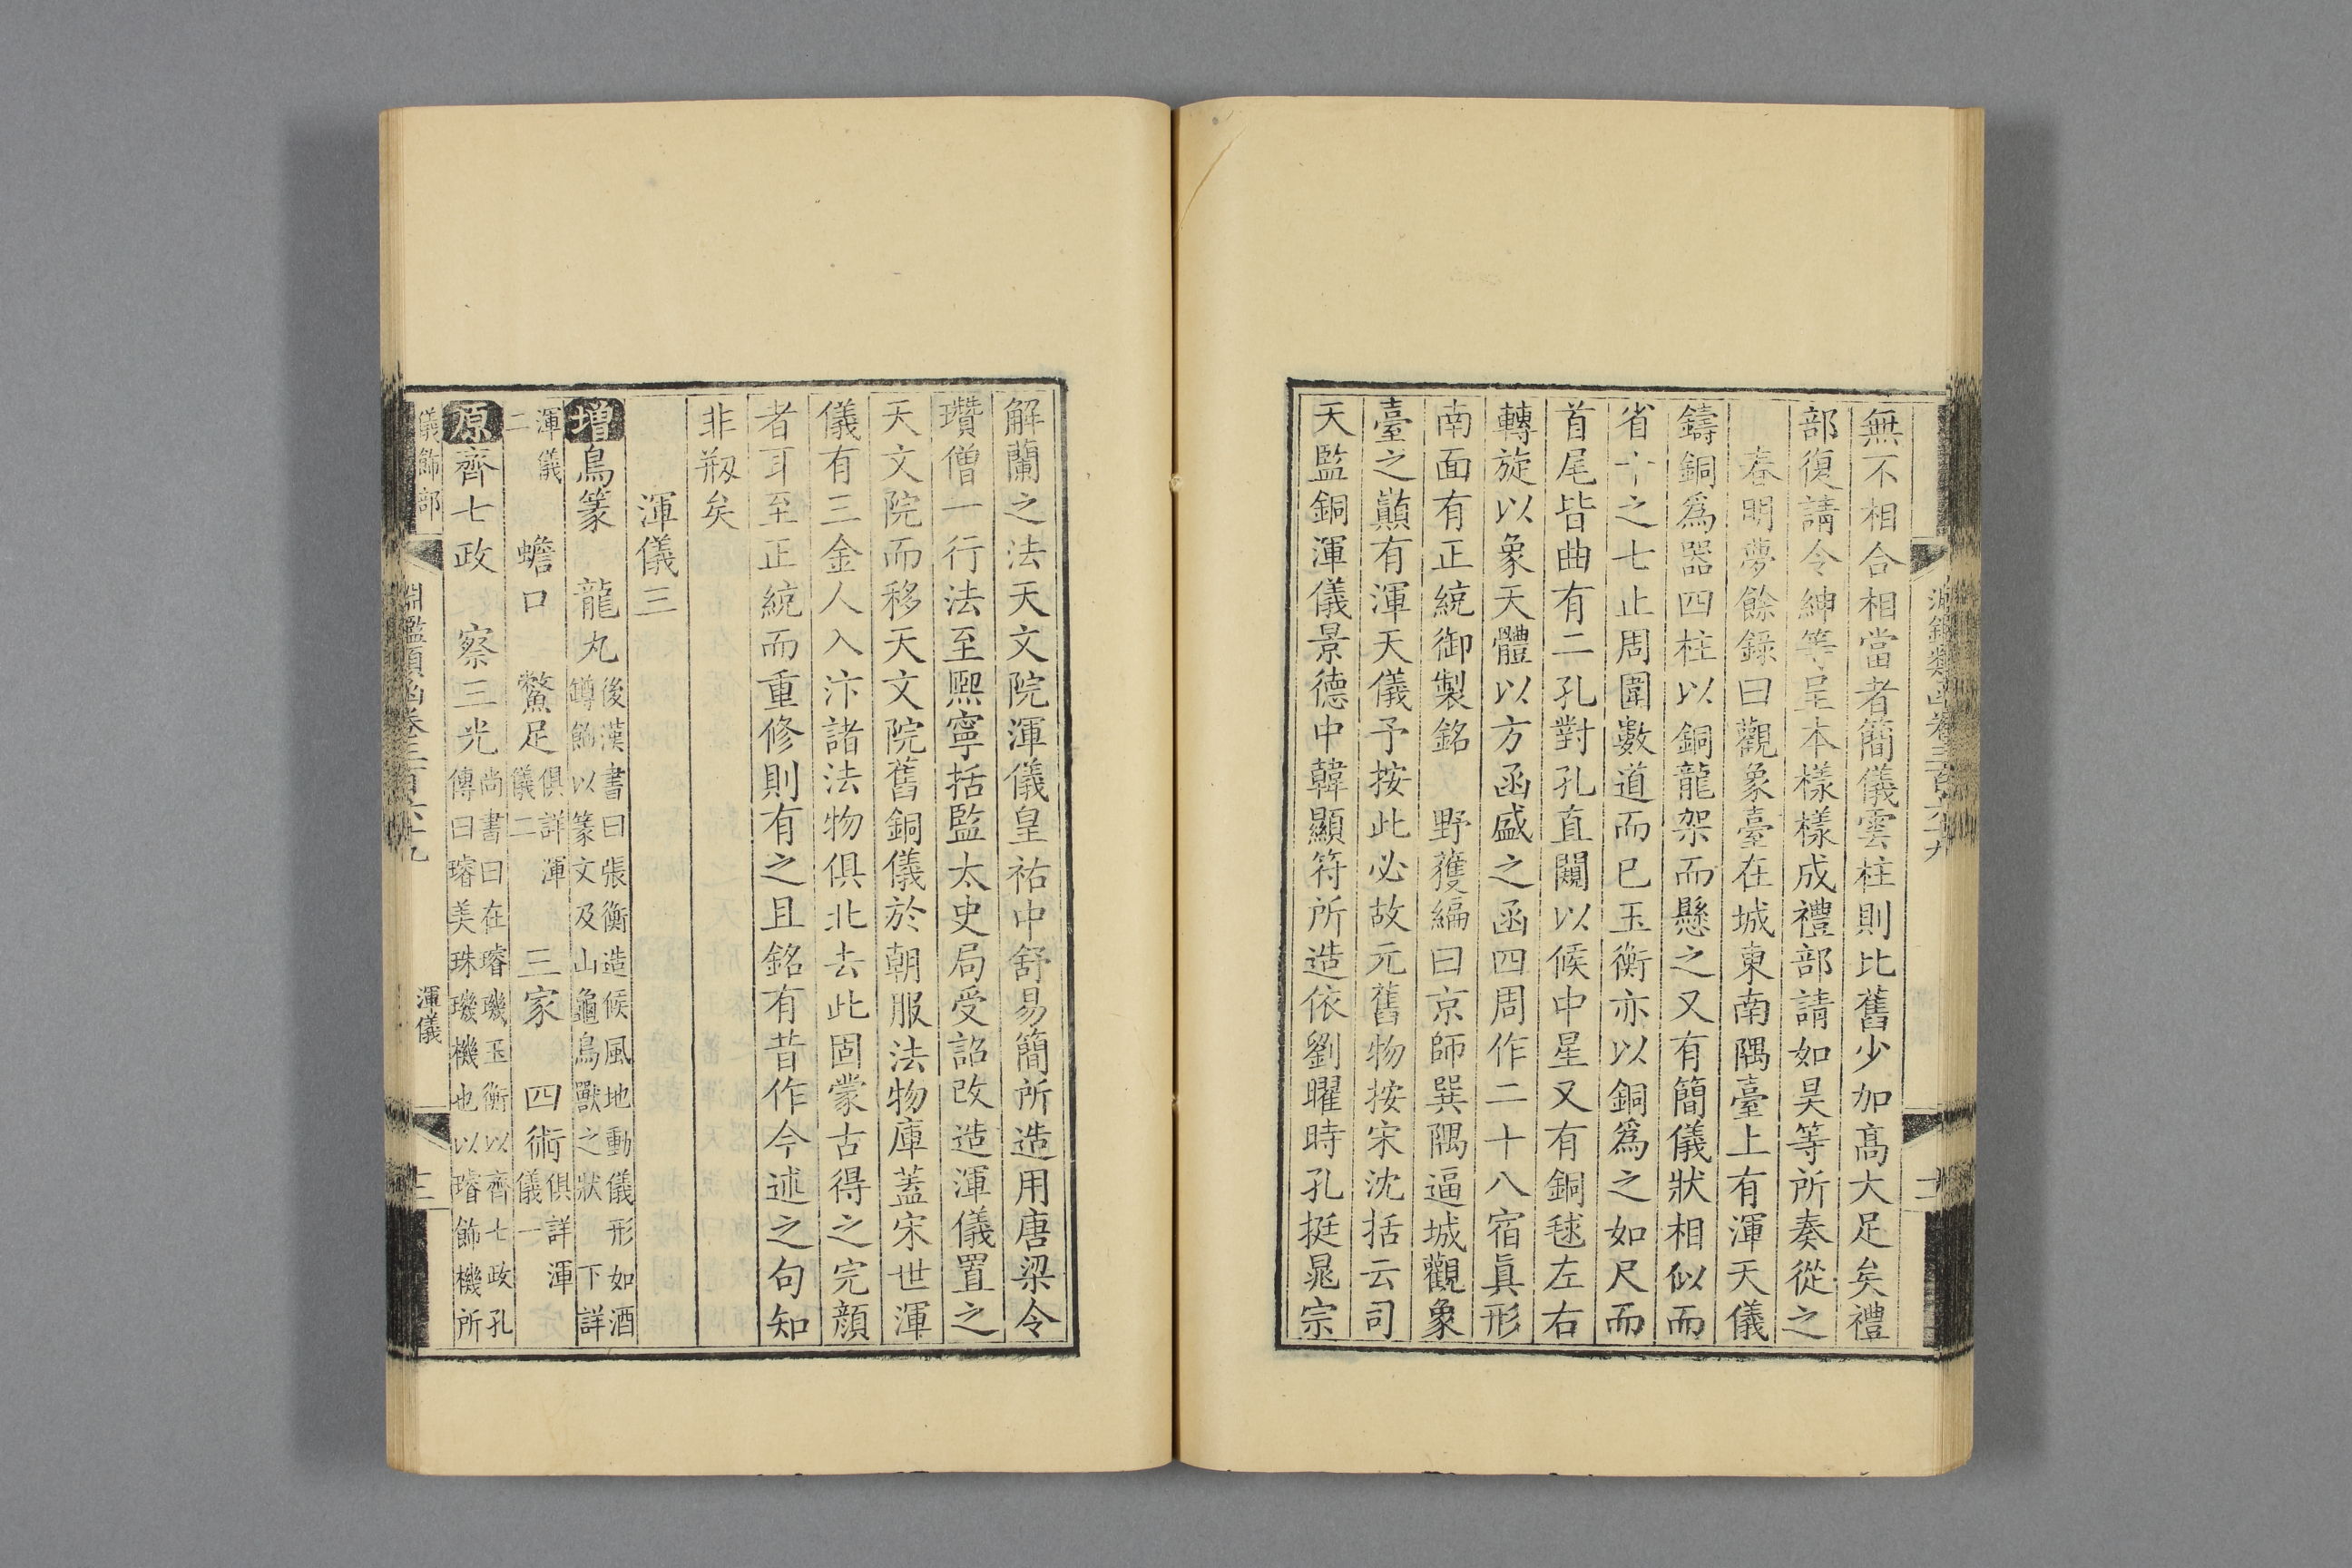 無不相合相當者簡儀雲柱則比舊少加高大足矣禮
部復請令紳等呈本樣樣成禮部請如昊等所奏從之
春明夢餘錄曰觀象臺在城東南隅臺上有渾天儀
鑄銅爲器四柱以銅龍架而懸之又有簡儀狀相似而
省十之七止周圍數道而已玉衡亦以銅爲之如尺而
首尾皆曲有二孔對孔直闚以候中星又有銅毬左右
轉旋以象天體以方函盛之函四周作二十八宿眞形
南面有正統御製銘 野獲編曰京師巽隅逼城觀象
臺之巔有渾天儀予按此必故元舊物按宋沈括云司
天監銅渾儀景德中韓顯符所造依劉曜時孔挺晁宗
解蘭之法天文院渾儀皇祐中舒易簡所造用唐梁令
瓚僧一行法至熙寧括監太史局受詔改造渾儀置之
天文院而移天文院舊銅儀於朝服法物庫蓋宋世渾
儀有三金人入汴諸法物俱北去此固蒙古得之完顏
者耳至正統而重修則有之且銘有昔作今述之句知
非剏矣
渾儀三
增鳥篆 龍丸後漢書曰張衡造候風地動儀形如酒
罇飾以篆文及山龜鳥獸之狀 下詳
渾儀
二 蟾口 鰲足俱詳渾
儀二 三家 四術俱詳渾
儀一
原齊七政 察三光尚書曰在璿璣玉衡以齊七政孔
傳曰璿美珠璣機也以璿飾機所
儀飾部
淵鑑類函卷三百六十九
渾儀
三